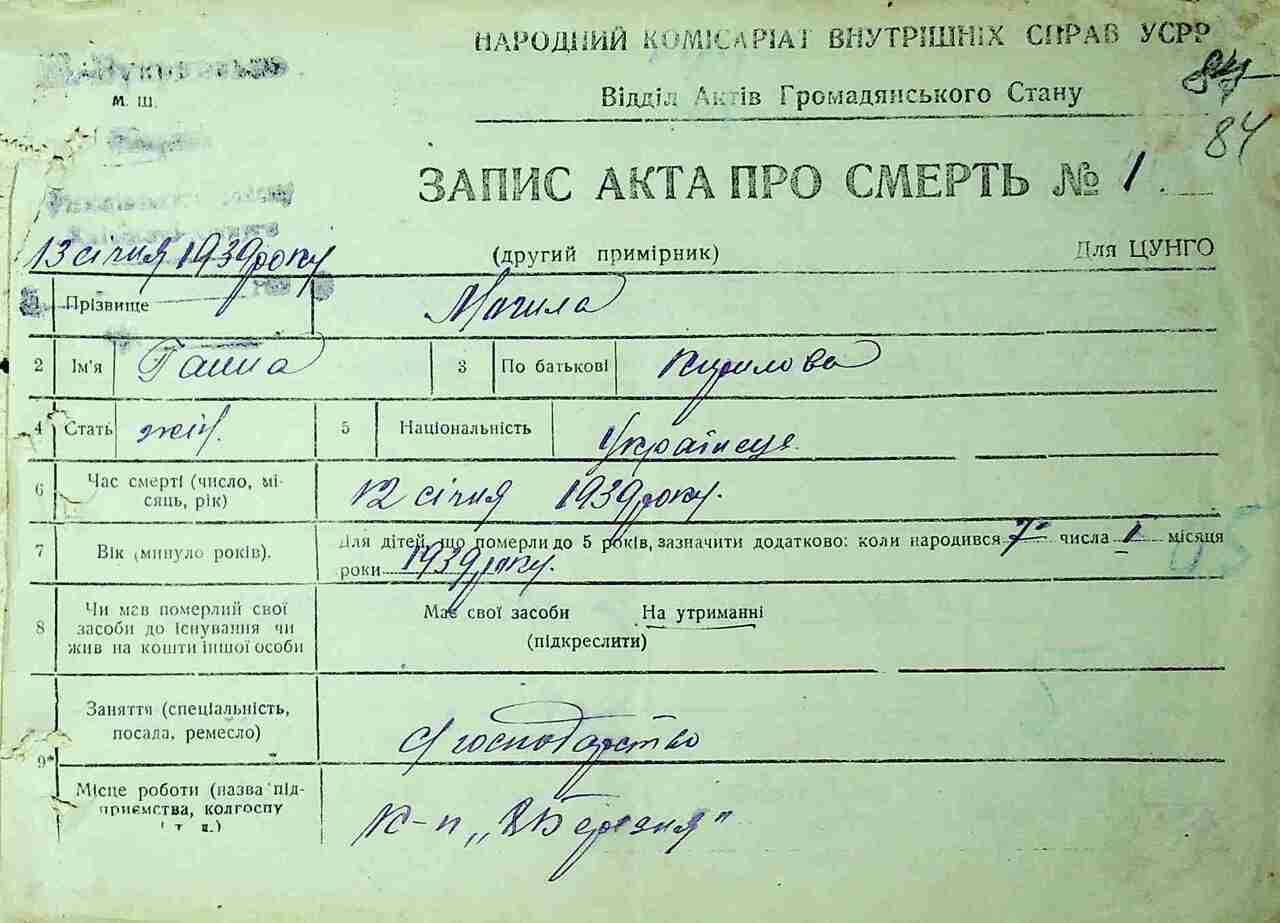 НАРОДНИЙ КОМІСАРІАТ ВНУТРІШНІХ СПРАВ УСРР
М. Ш.
Відділ Актів Громадянського Стану
84
84
ЗАПИС АКТА ПРО СМЕРТЬ № 1.
13 січня 1939 року
(другий примірник) Для ЦУНГО
Прізвище Могила
2 Ім'я Ганна 3 По батькові Кирилова
4 Стать жін. 5 Національність Українця
6 Час смерті (число, мі-
сяць, рік) 12 січня 1939 року.
7 Вік (минуло років). Для дітей, що померли до 5 років, зазначити додатково: коли народився 7 числа 1 місяця
роки 1939 року.
8 Чи мав померлий свої
засоби до існування чи
жив на кошти іншої особи
Має свої засоби На утриманні
(підкреслити)
Заняття (спеціальність,
посада, ремесло)
с/господарство
9*
Місце роботи (назва під-
приємства, колгоспу
і т. п.)
К-п „8 Березня"